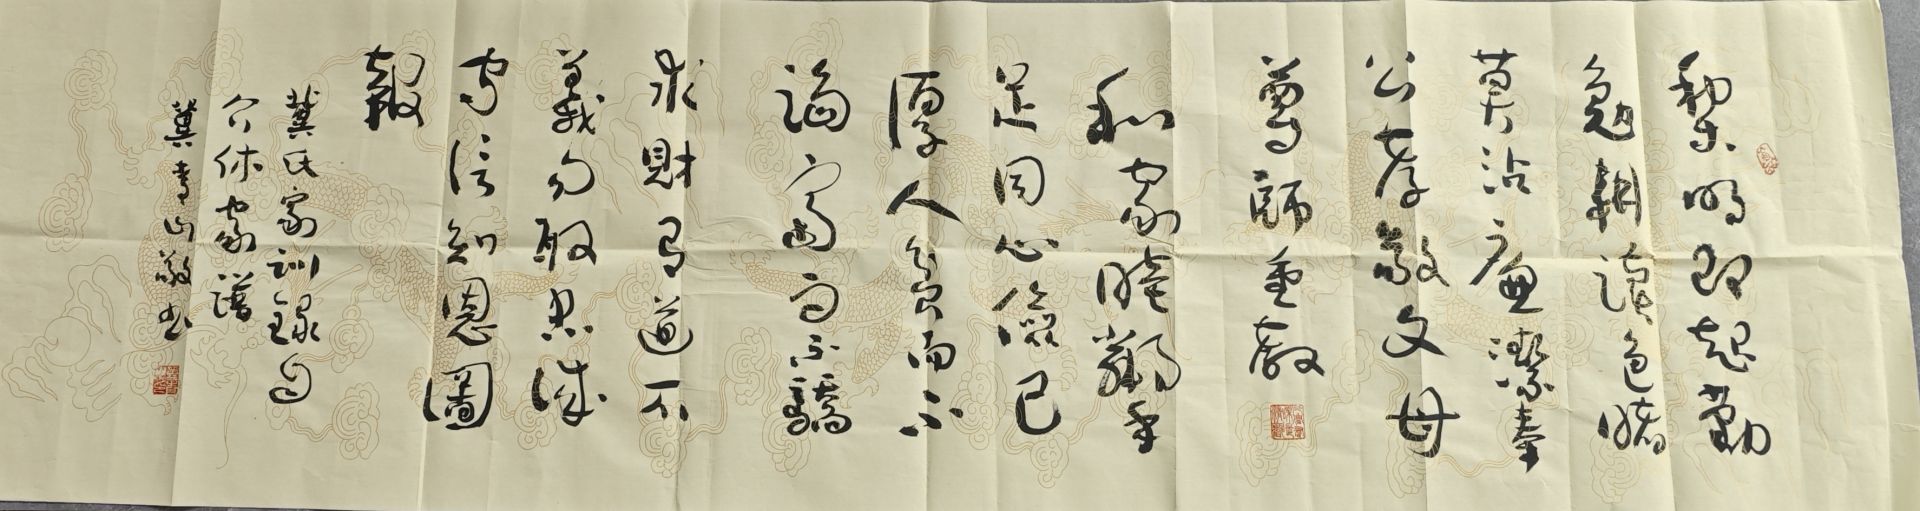 黎明即起勤
勉耕讀色賭
莫沾廉潔奉
公孝敬父母
尊師重教
和家睦鄰手
足同心儉己
厚人貧而不
諂富而不驕
求財有道不
義勿取忠誠
守信知恩圖
報
冀氏家訓錄自
介休家譜
冀山敬书